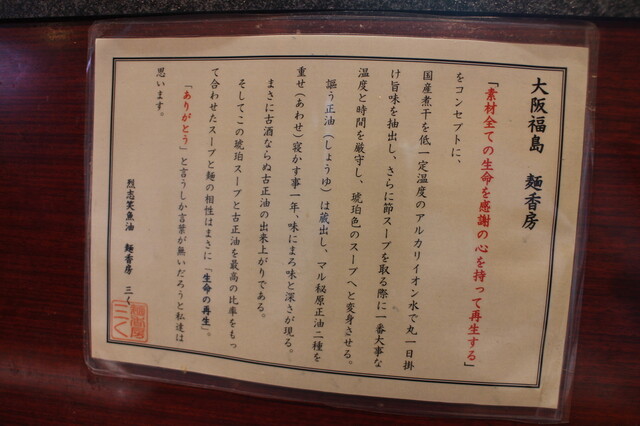 大阪福島 麺香房
「素材全ての生命を感謝の心を持って再生する」
をコンセプトに、
国産煮干を低一定温度のアルカリイオン水で丸一日掛
け旨味を抽出し、さらに節スープを取る際に一番大事な
温度と時間を厳守し、琥珀色のスープへと変身させる。
謳う正油(しょうゆ)は蔵出し、マル秘原正油二種を
重せ(あわせ)寝かす事一年、味にまろ味と深さが現る。
まさに古酒ならぬ古正油の出来上がりである。
そしてこの琥珀スープと古正油を最高の比率をもっ
て合わせたスープと麺の相性はまさに「生命の再生」。
「ありがとう」と言うしか言葉が無いだろうと私達は
思います。
烈志笑魚油 麺香房 三く
麺香房
三く